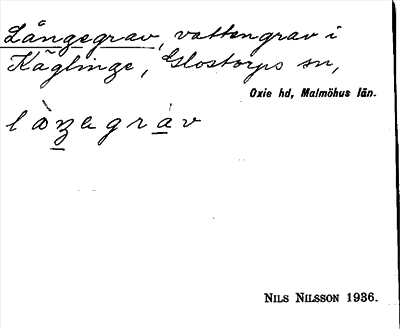 Långegrav, vattengrav i
Käglinge, Glostorps sn,
Oxie hd, Malmöhus län.
lòŋegrav
NILS NILSSON 1936.